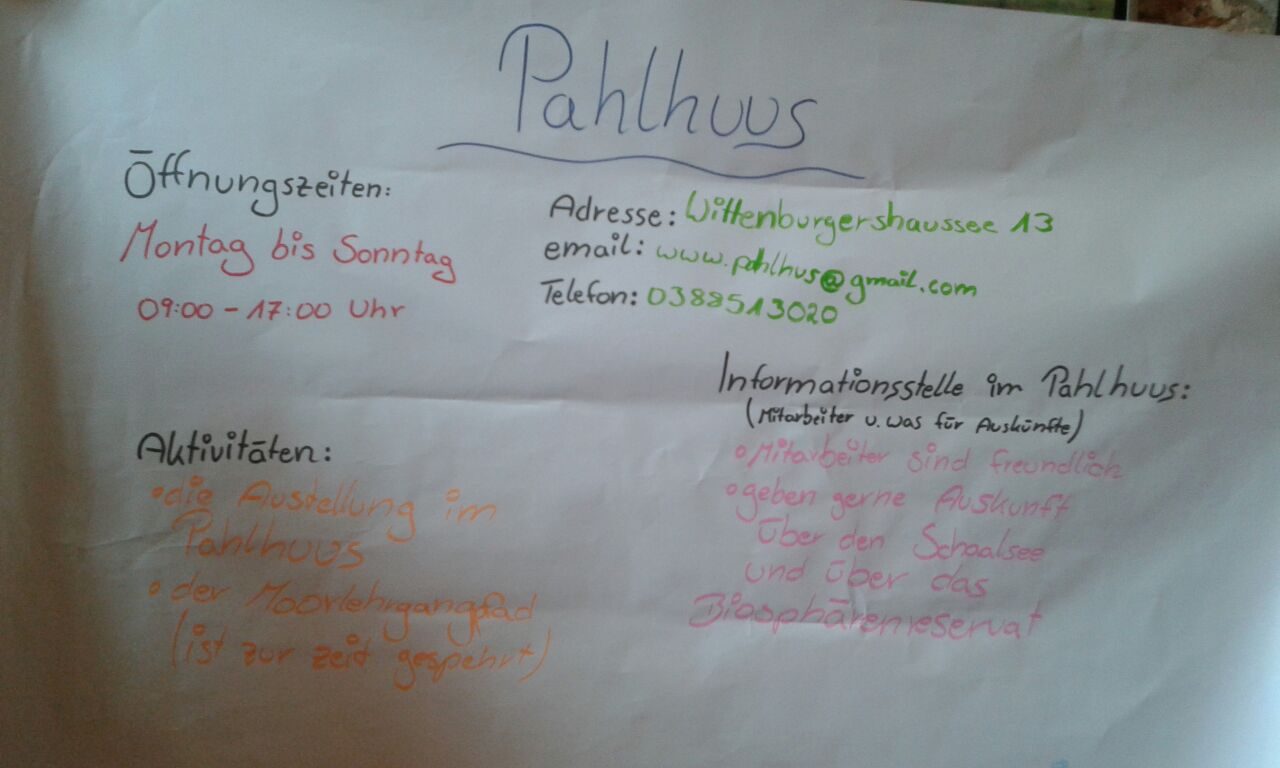 Pahlhuus
Öffnungszeiten:
Montag bis Sonntag
09:00 - 17:00 Uhr
Adresse: Wittenburgershaussee 13
email: www.pahlhus@gmail.com
Telefon: 0388513020
Aktivitäten:
• die Austellung im
Pahlhuus
• der Moorlehrgangpfad
(ist zur zeit gespehrt)
Informationsstelle im Pahlhuus:
(Mitarbeiter u. was für Auskünfte)
• Mitarbeiter sind freundlich
• geben gerne Auskunft
über den Schaalsee
und über das
Biosphärenreservat